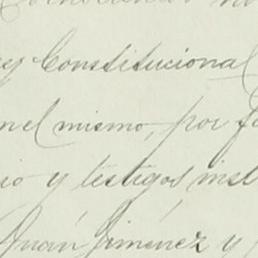 y Constitucional
en el mismo, por
io y testigos inst
Juán Jiménez y